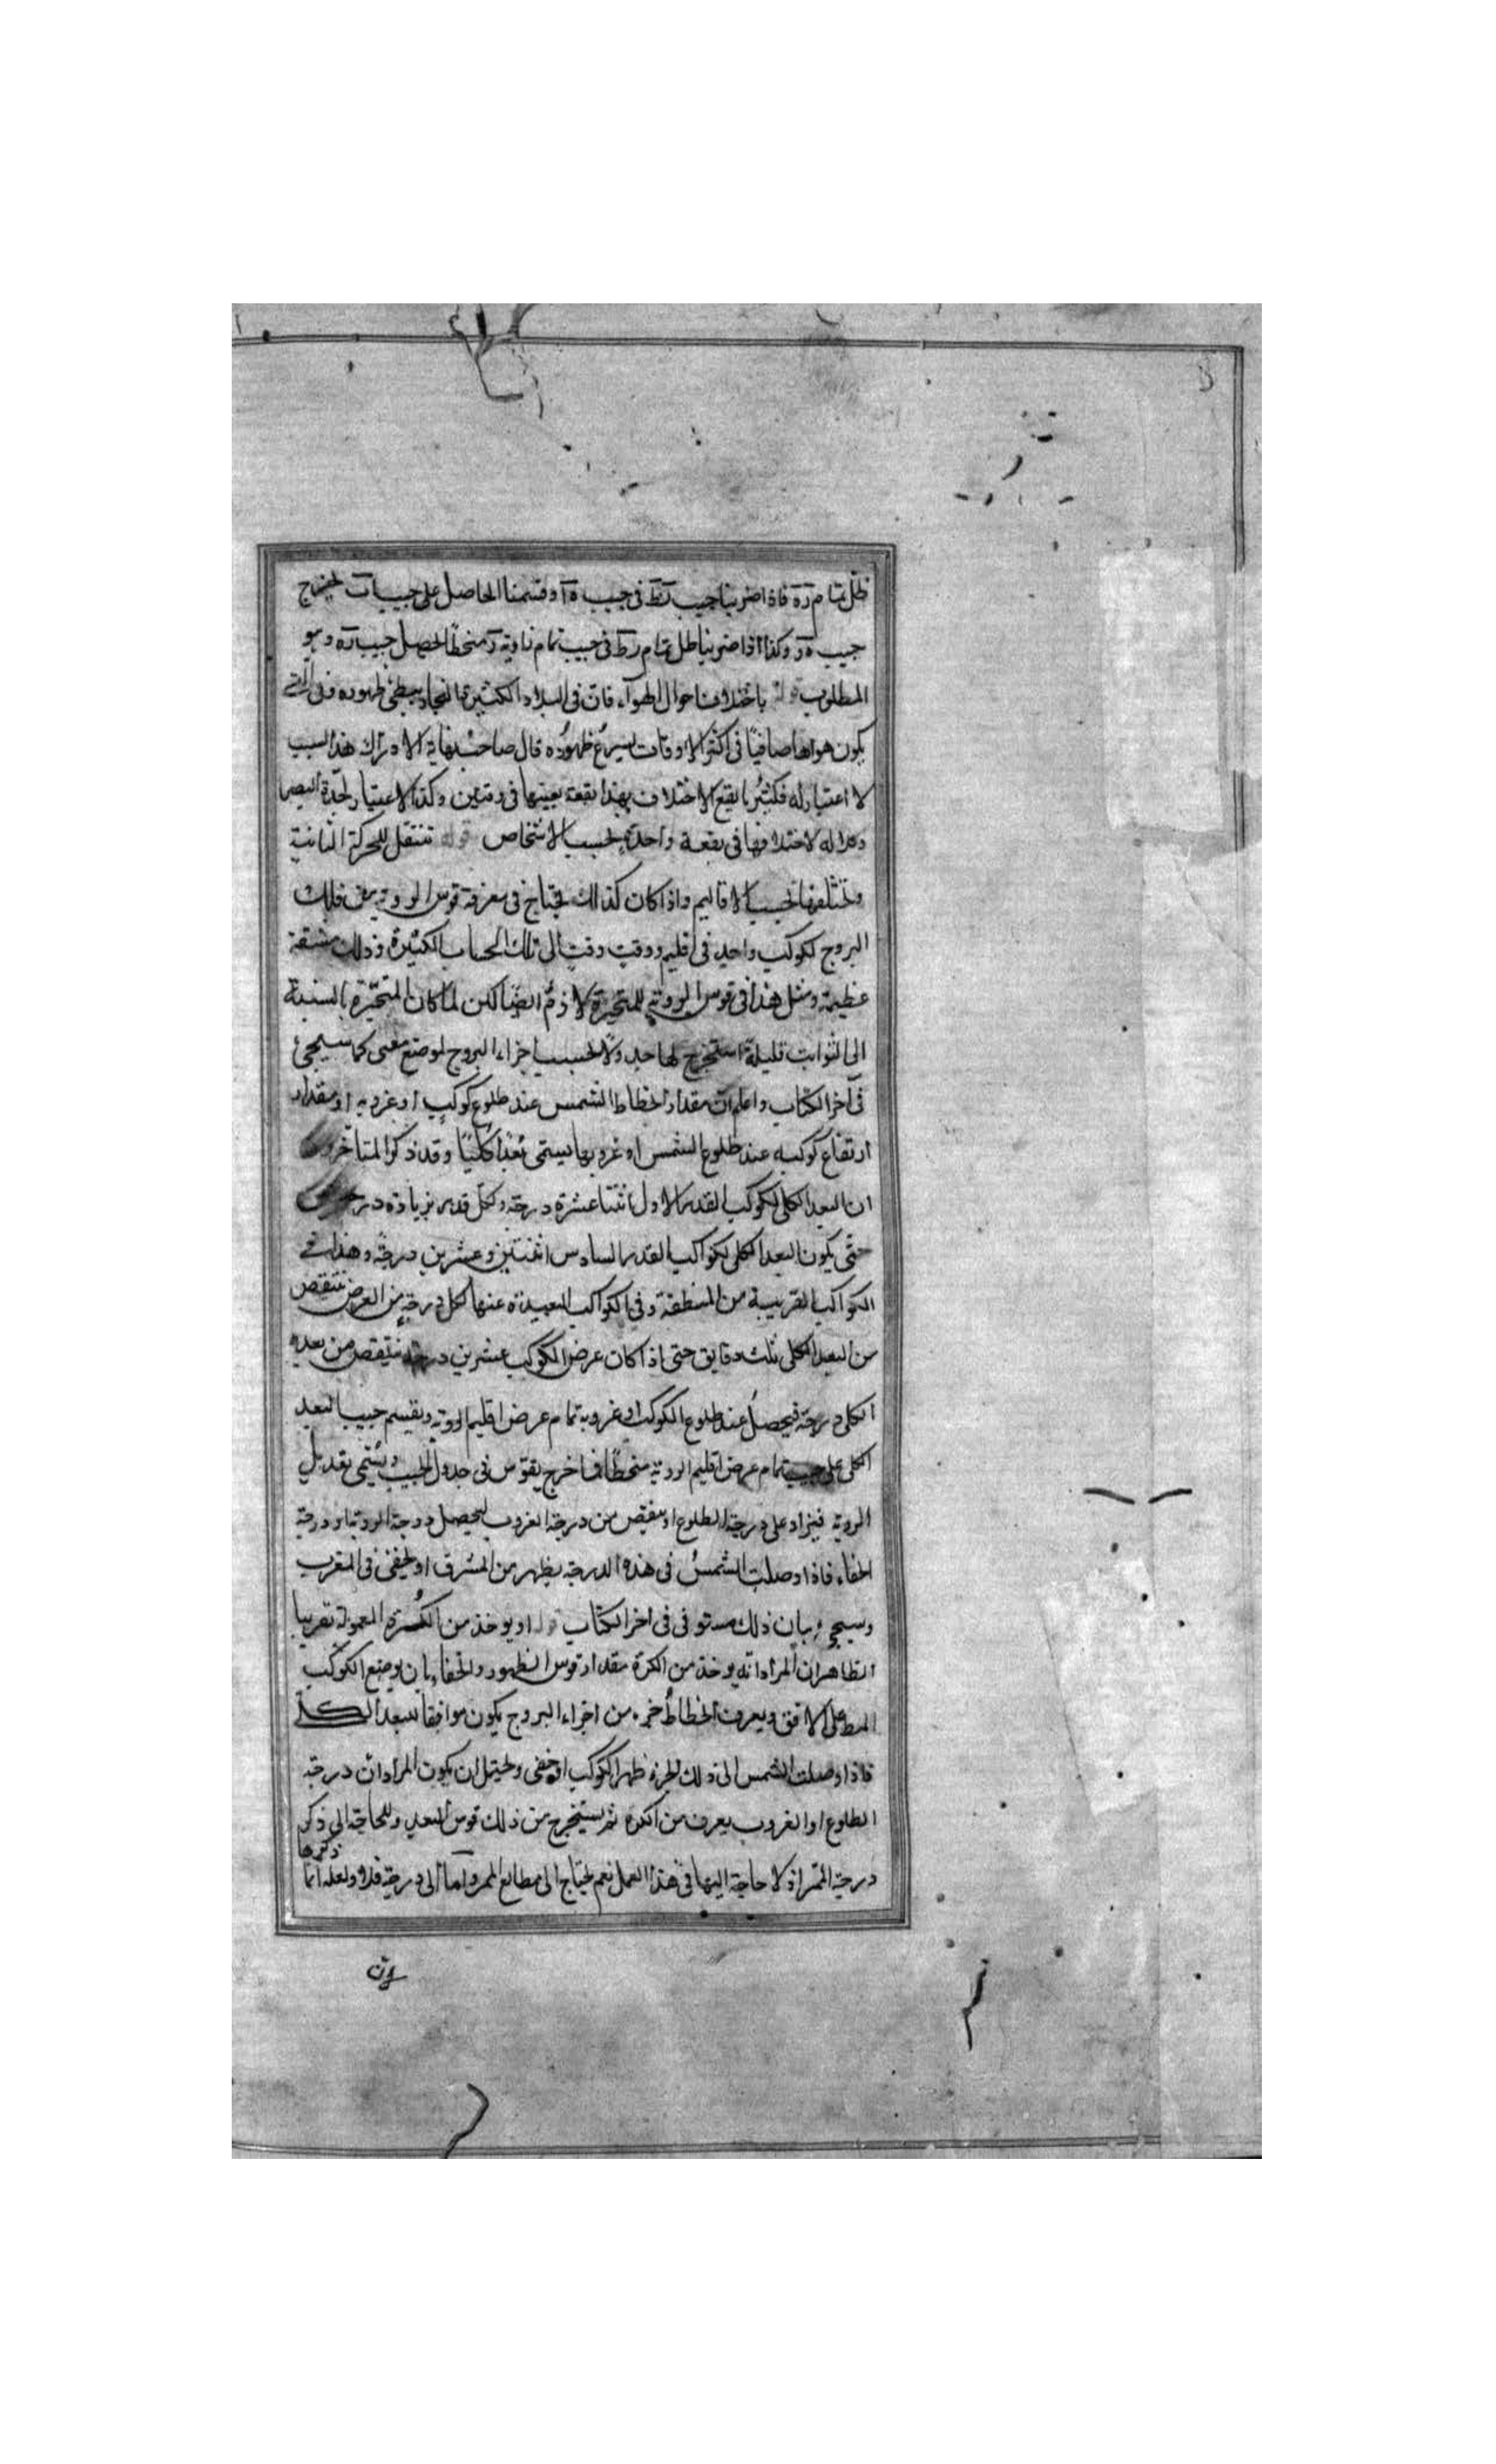 ظل تمام رة فاذا ضربنا جيب رط فى جيب ة آ وقسمنا الحاصل على جيب ات ليخرج
جيب ة ر وكذا اذا ضربنا ظل تمام رط فى جيب تمام زاوية ر منحطا ليحصل جيب رة وهو
المطلوب قوله باختلاف احوال الهواء فان فى البلاد الكثيرة البخار يبطئ ظهوره وفى التى
يكون هواها صافيا فى اكثر الاوقات يسرع ظهوره قال صاحب نهاية الادراك هذا السبب
لا اعتبار له فكثيرا ما يقع الاختلاف بهذا بقعة بعينها فى وقتين وكذا لا اعتبار لحدة البصر
وكلاله لاختلافها فى بقعة واحدة بحسب الاشخاص قوله تنتقل للحركة الثانية
وتختلف بحسب الاقاليم واذا كان كذلك يحتاج فى معرفة قوس الروية من فلك
البروج لكوكب واحد فى اقليم ووقت وقت الى تلك الحساب الكثيرة وذلك مشقة
عظيمة ومثل هذا فى قوس الروية للمتحيرة لازم ايضا لكن لما كان المتحيرة بالنسبة
الى الثوابت قليلة استخرج لها جدولا بحسب اجزاء البروج لموضع معين كما سيجئ
فى آخر الكتاب واعلم ان مقدار انحطاط الشمس عند طلوع كوكب او غروبه او مقدار
ارتفاع كوكبه عند طلوع الشمس او غروبها يسمى بُعْدًا كليًّا وقد ذكر المتاخرون
ان البعد الكلى لكوكب القدر الاول اثنتا عشرة درجة ولكل قدر بزيادة درجتين
حتّى يكون البعد الكلى لكواكب القدر السادس اثنتين وعشرين درجة وهذا فى
الكواكب القريبة من المنطقة وفى الكواكب البعيدة عنها لكل درجة من العرض ينتقص
من البعد الكلى ثلث دقايق حتى اذا كان عرض الكوكب عشرين درجة ينتقص من بعده
الكلى درجة فيحصل عند طلوع الكوكب او غروبه تمام عرض اقليم الروية ويقسم جيب البعد
الكلى على جيب تمام عرض اقليم الروية منحطا فما خرج يقوس فى جدول الجيب ويسمى تعديل
الروية فيزاد على درجة الطلوع او ينقص من درجة الغروب ليحصل درجة الروية او درجة
الخفاء فاذا وصلت الشمس فى هذه الدرجة يظهر من المشرق او يخفى فى المغرب
وسيجئ بيان ذلك مستوفى فى اخر الكتاب قوله او يوخذ من الكرة المعمولة تقريبا
الظاهر ان المراد انه يوخذ من الكرة مقدار قوس الظهور والخفاء بان يوضع الكوكب
المط على الافق ويعرف انحطاط جزء من اجزاء البروج يكون موافقا لبعد الكلى
فاذا وصلت الشمس الى ذلك الجزء ظهر الكوكب او خفى ويحتمل ان يكون المراد ان درجة
الطلوع او الغروب يعرف من الكرة ثم يستخرج من ذلك قوس البعد ولا حاجة الى ذكر
درجة الممر اذ لا حاجة اليها فى هذا العمل نعم يحتاج الى مطالع الممر واما الى درجة فلا ولعله انما
ذكرها
لان